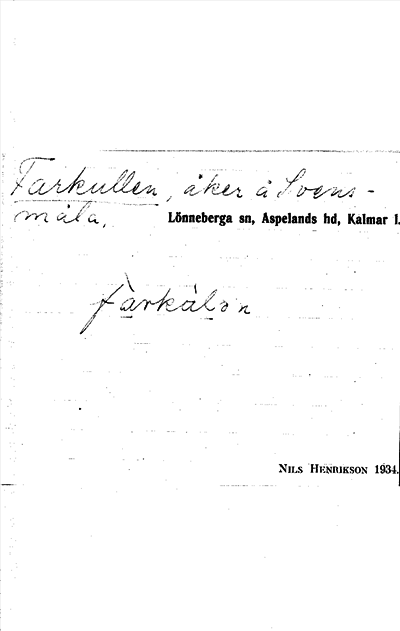 Farkullen, åker å Svens-
måla. Lönneberga sn, Aspelands hd, Kalmar l.
fàrkàlən
NILS HENRIKSON 1934.